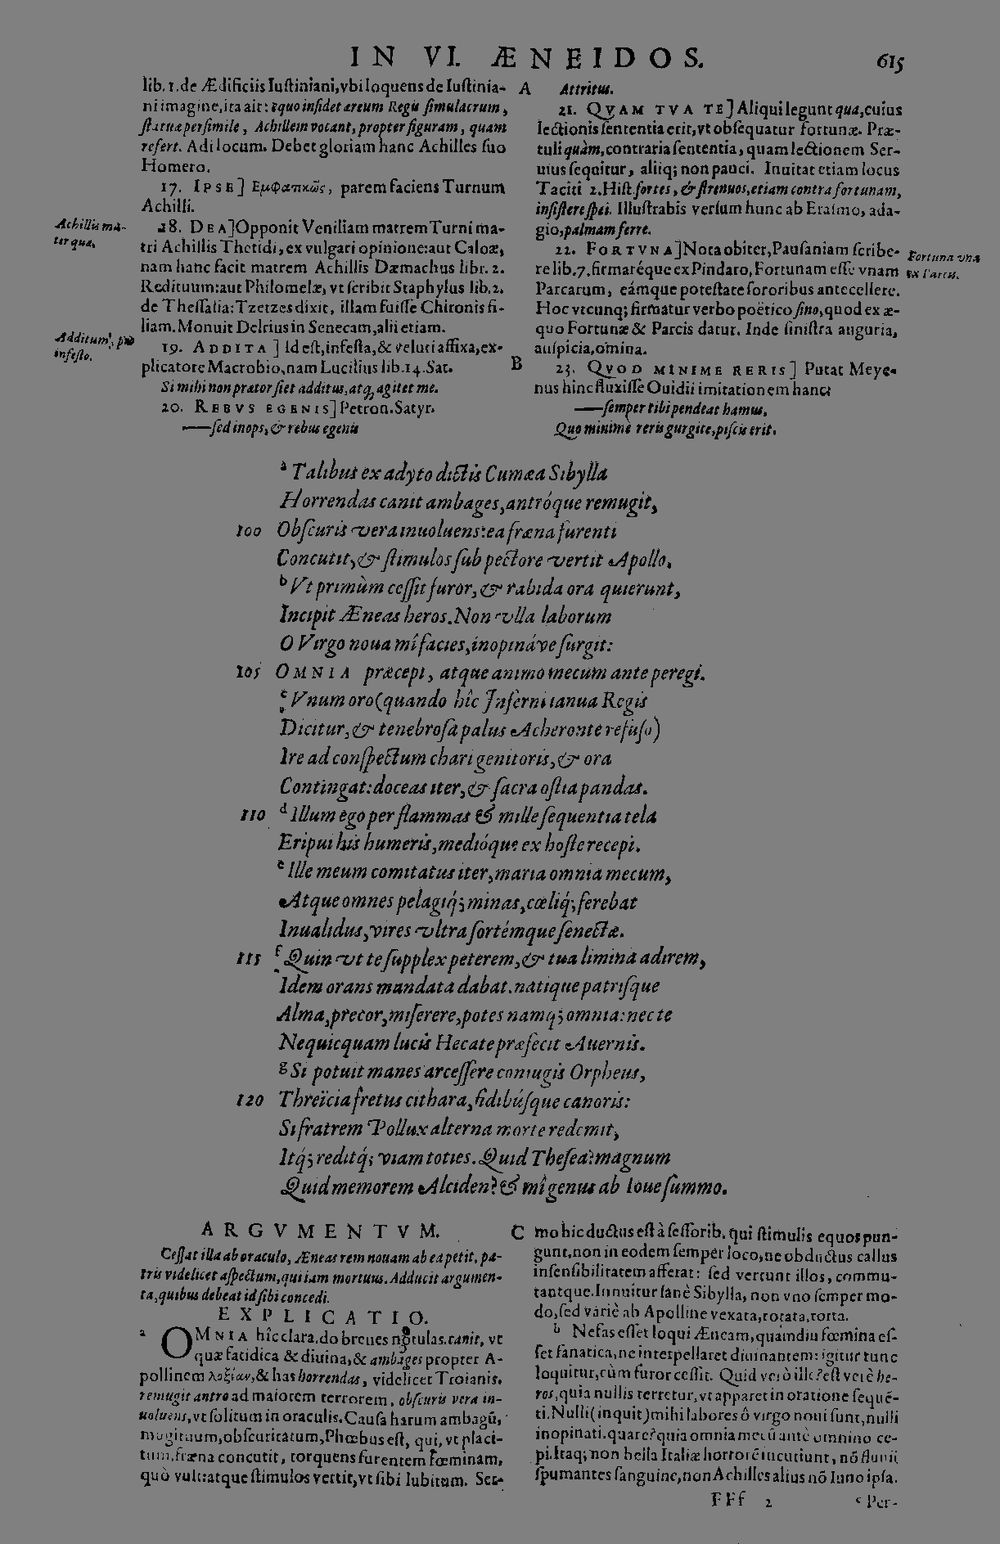 IN VI. ÆNEIDOS. 615
lib. 1. de Ædificiis Iustiniani, vbi loquens de Iustinia-
ni imagine, ita ait: equo insidet æreum Regis simulacrum,
statuæ persimile, Achillem vocant, propter figuram, quam
refert. Adi locum. Debet gloriam hanc Achilles suo
Homero.
17. IPSE] Εμφατικῶς, parem faciens Turnum
Achilli.
Achillis ma-
ter quæ,
18. DEA] Opponit Veniliam matrem Turni ma-
tri Achillis Thetidi, ex vulgari opinione: aut Caloæ,
nam hanc facit matrem Achillis Dæmachus libr. 2.
Redituum: aut Philomelæ, vt scribit Staphylus lib. 2.
de Thessalia: Tzetzes dixit, illam fuisse Chironis fi-
liam. Monuit Delrius in Senecam, alii etiam.
Additum, pro
infesto.
19. ADDITA] Id est, infesta, & veluti affixa, ex-
plicatore Macrobio, nam Lucilius lib. 14. Sat.
Si mihi non prætor siet additus, atq, agitet me.
20. REBVS EGENIS] Petron. Satyr.
——sed inops, & rebus egenis
A Attritus.
21. QVAM TVA TE] Aliqui legunt qua, cuius
lectionis sententia erit, vt obsequatur fortunæ. Præ-
tuli quàm, contraria sententia, quam lectionem Ser-
uius sequitur, aliiq; non pauci. Inuitat etiam locus
Taciti 2. Hist. fortes, & strenuos, etiam contra fortunam,
insistere spei. Illustrabis versum hunc ab Erasmo, ada-
gio, palmam ferre.
22. FORTVNA] Nota obiter, Pausaniam scribe-
re lib. 7. firmaréque ex Pindaro, Fortunam esse vnam
Parcarum, eámque potestate sororibus antecellere.
Hoc vtcunq; firmatur verbo poëtico sino, quod ex æ-
quo Fortunæ & Parcis datur. Inde sinistra auguria,
auspicia, omina.
Fortuna vna
ex Parcis.
B 23. QVOD MINIME RERIS] Putat Meye-
nus hinc fluxisse Ouidii imitationem hanc:
——semper tibi pendeat hamus,
Quo minimè reris gurgite, piscis erit.
a Talibus ex adyto dictis Cumæa Sibylla
Horrendas canit ambages, antróque remugit,
100 Obscuris vera inuoluens: ea fræna furenti
Concutit, & stimulos sub pectore vertit Apollo.
b Vt primùm cessit furor, & rabida ora quierunt,
Incipit Æneas heros. Non vlla laborum
O Virgo noua mî facies, inopináve surgit:
105 OMNIA præcepi, atque animo mecum ante peregi.
c Vnum oro (quando hîc Inferni ianua Regis
Dicitur, & tenebrosa palus Acheronte refuso)
Ire ad conspectum chari genitoris, & ora
Contingat: doceas iter, & sacra ostia pandas.
110 d Illum ego per flammas & mille sequentia tela
Eripui his humeris, medióque ex hoste recepi.
e Ille meum comitatus iter, maria omnia mecum,
Atque omnes pelagiq́; minas, cœliq́; ferebat
Inualidus, vires vltra sortémque senectæ.
115 f Quin vt te supplex peterem, & tua limina adirem,
Idem orans mandata dabat. natique patrisque
Alma, precor, miserere, potes namq; omnia: nec te
Nequicquam lucis Hecate præfecit Auernis.
g Si potuit manes arcessere coniugis Orpheus,
120 Threïcia fretus cithara, fidibúsque canoris:
Si fratrem Pollux alterna morte redemit,
Itq́; reditq́; viam toties. Quid Thesea? magnum
Quid memorem Alciden? & mî genus ab Ioue summo.
ARGVMENTVM.
Cessat illa ab oraculo, Æneas rem nouam ab ea petit, pa-
tris videlicet aspectum, qui iam mortuus. Adducit argumen-
ta, quibus debeat id sibi concedi.
EXPLICATIO.
a OMNIA hîc clara. do breues notulas. canit, vt
quæ fatidica & diuina, & ambages propter A-
pollinem λοξίαν, & has horrendas, videlicet Troianis.
remugit antro ad maiorem terrorem, obscuris vera in-
uoluens, vt solitum in oraculis. Causa harum ambagũ,
mugituum, obscuritatum, Phœbus est, qui, vt placi-
tum, fræna concutit, torquens furentem fœminam,
quò vult: atque stimulos vertit, vt sibi lubitum. Ser-
C mo hic ductus est à sessorib. qui stimulis equos pun-
gunt, non in eodem semper loco, ne obductus callus
insensibilitatem afferat: sed vertunt illos, commu-
tantque. Innuitur sanè Sibylla, non vno semper mo-
do, sed variè ab Apolline vexata, rotata, torta.
b Nefas esset loqui Æneam, quamdiu fœmina es-
set fanatica, ne interpellaret diuinantem: igitur tunc
loquitur, cùm furor cessit. Quid verò ille? est verè he-
ros, quia nullis terretur, vt apparet in oratione sequē-
ti. Nulli (inquit) mihi labores ô virgo noui sunt, nulli
inopinati. quare? quia omnia mecũ antè omnino ce-
pi. Itaq; non bella Italiæ horrorē incutiunt, nō fluuii
spumantes sanguine, non Achilles alius nō Iuno ipsa.
FFf 2 c Per-